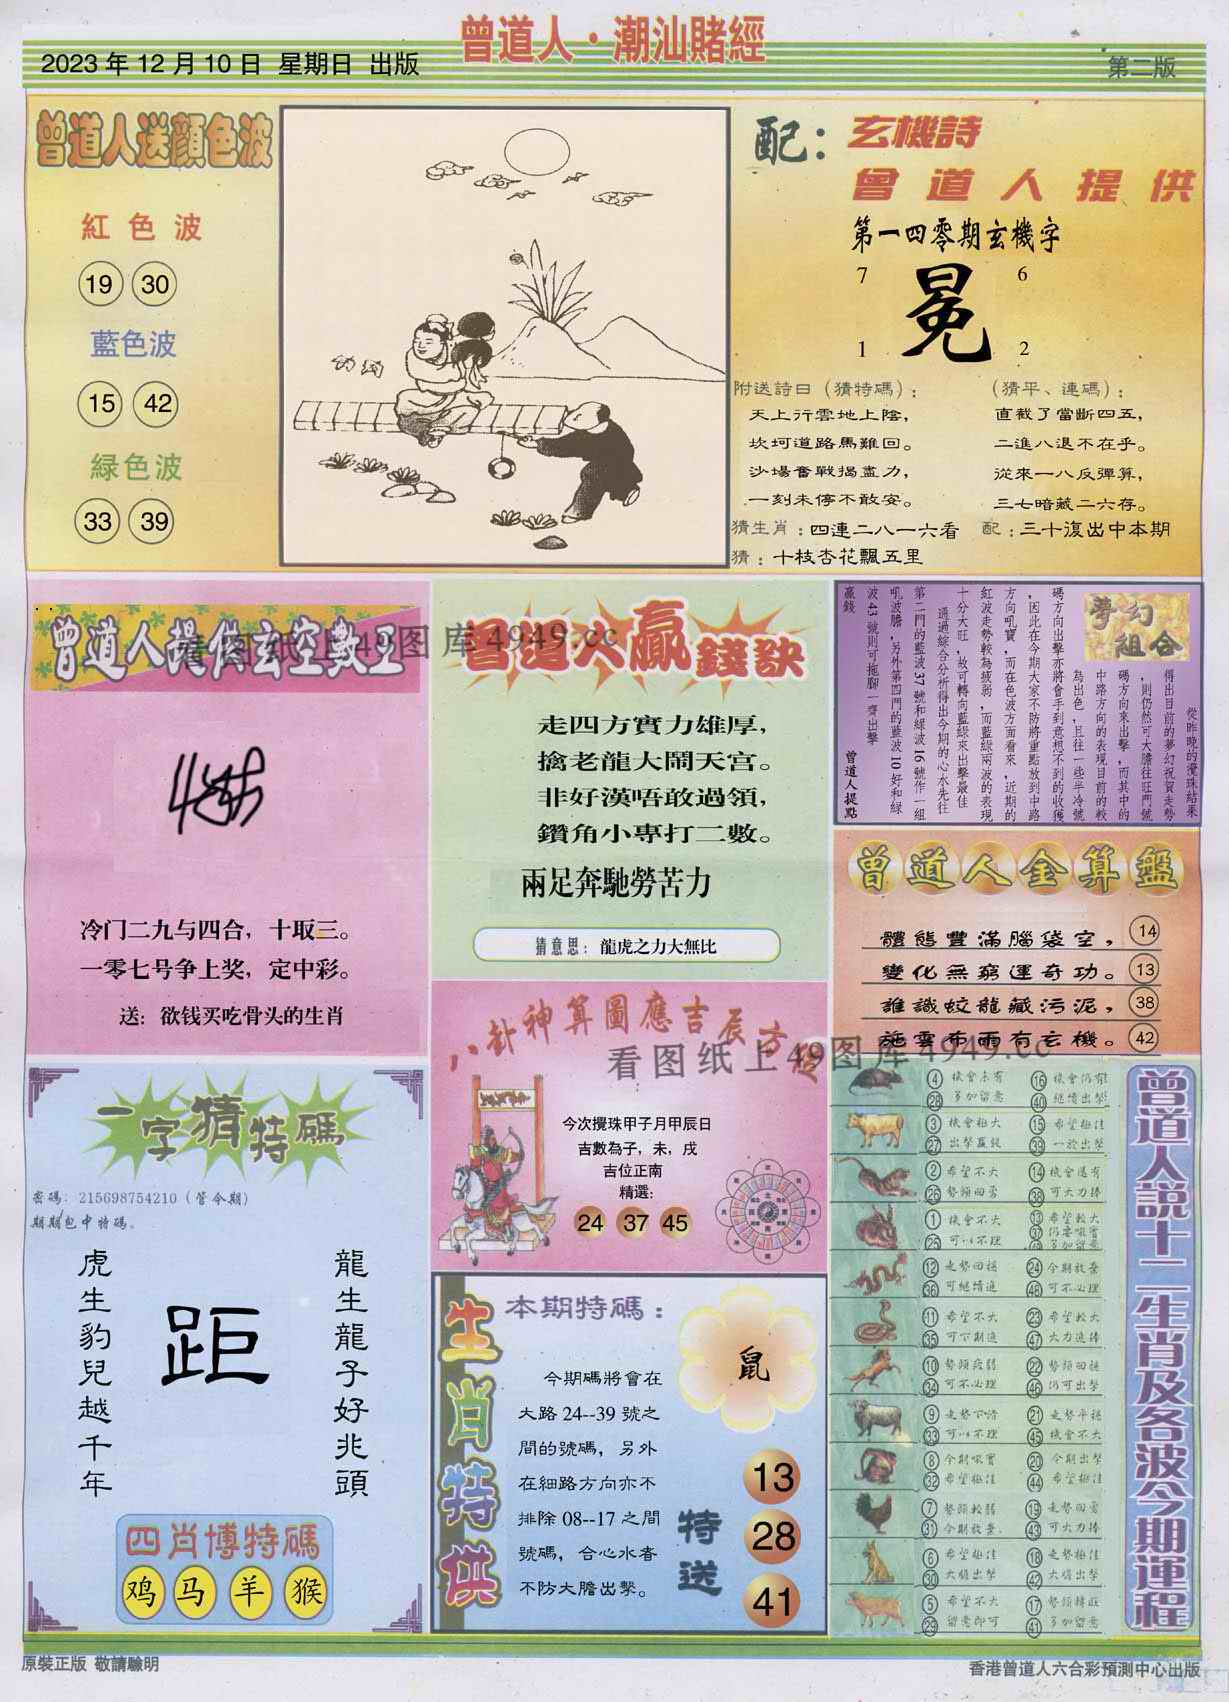 曾道人·潮汕賭經
2023年12月10日 星期日 出版
第二版
曾道人送顏色波
紅色波
19 30
藍色波
15 42
綠色波
33 39
配：玄機詩
曾道人提供
第一四零期玄機字
7 6
冕
1 2
附送詩曰（猜特碼）：
天上行雲地上陰，
坎坷道路馬難回。
沙場奮戰揭盡力，
一刻未停不敢安。
（猜平、連碼）：
直截了當斷四五，
二進八退不在乎。
從來一八反彈算，
三七暗藏二六存。
猜生肖：四連二八一六看 配：三十復出中本期
猜：十枝杏花飄五里
曾道人提供玄空數王
看图纸上49图库4949.cc
冷门二九与四合，十取三。
一零七号争上奖，定中彩。
送：欲钱买吃骨头的生肖
曾道人贏錢訣
走四方實力雄厚，
擒老龍大鬧天宮。
非好漢唔敢過領，
鑽角小專打二數。
兩足奔馳勞苦力
猜意思：龍虎之力大無比
夢幻
組合
從昨晚的攪珠結果
得出目前的夢幻祝賀走勢
，則仍然可大膽往旺門號
碼方向來出擊，而其中的
中路方向的表現目前的較
為出色，且往一些半冷號
碼方向出擊亦將會手到意想不到的收獲
，因此在今期大家不防將重點放到中路
方向吼寶，而在色波方面看來，近期的
紅波走勢較為疲弱，而藍綠兩波的表現
十分大旺，故可轉向藍綠來出擊最佳
通過綜合分析得出今期的心水先往
第二門的藍波37號和綠波16號作一組
吼波膽，另外第四門的藍波10好和綠
波43號則可拖腳一齊出擊
贏錢
曾道人提點
曾道人金算盤
體態豐滿腦袋空， 14
變化無窮運奇功。 13
誰識蛟龍藏污泥， 38
施雲布雨有玄機。 42
八卦神算圖應吉辰方位
看图纸上49图库4949.cc
今次攪珠甲子月甲辰日
吉數為子，未，戌
吉位正南
精選：
24 37 45
一字猜特碼
密碼：215698754210（管今期）
期期包中特碼。
虎生豹兒越千年
距
龍生龍子好兆頭
四肖博特碼
鸡 马 羊 猴
生肖特供
本期特碼：
鼠
今期碼將會在
大路24--39號之
間的號碼，另外
在細路方向亦不
排除08--17之間
號碼，合心水者
不防大膽出擊。
特送
13
28
41
曾道人說十二生肖及各波今期運程
4 機會未有 16 機會仍有
28 多加留意 40 繼續出擊
3 機會極大 15 希望極佳
27 出擊贏錢 39 一於出擊
2 希望不大 14 機會還有
26 勢頭回勇 38 可大力捧
1 機會不大 13 希望較大
25 可以不理 37 仍要吼實
49 多加留意
12 走勢回穩 24 今期放棄
36 可繼續追 48 可不必理
11 希望不大 23 希望較大
35 可下期追 47 大力追捧
10 勢頭疲弱 22 勢頭回穩
34 可不必理 46 仍可出擊
9 走勢下滑 21 走勢平穩
33 可以不理 45 機會不大
8 今期吼實 20 今期出擊
32 希望極佳 44 希望極佳
7 勢頭較弱 19 走勢回勇
31 今期放棄 43 可大力捧
6 希望極佳 18 走勢極佳
30 大膽出擊 42 大膽出擊
5 希望不大 17 勢頭轉旺
29 留意即可 41 多加留意
原裝正版 敬請驗明
香港曾道人六合彩預測中心出版